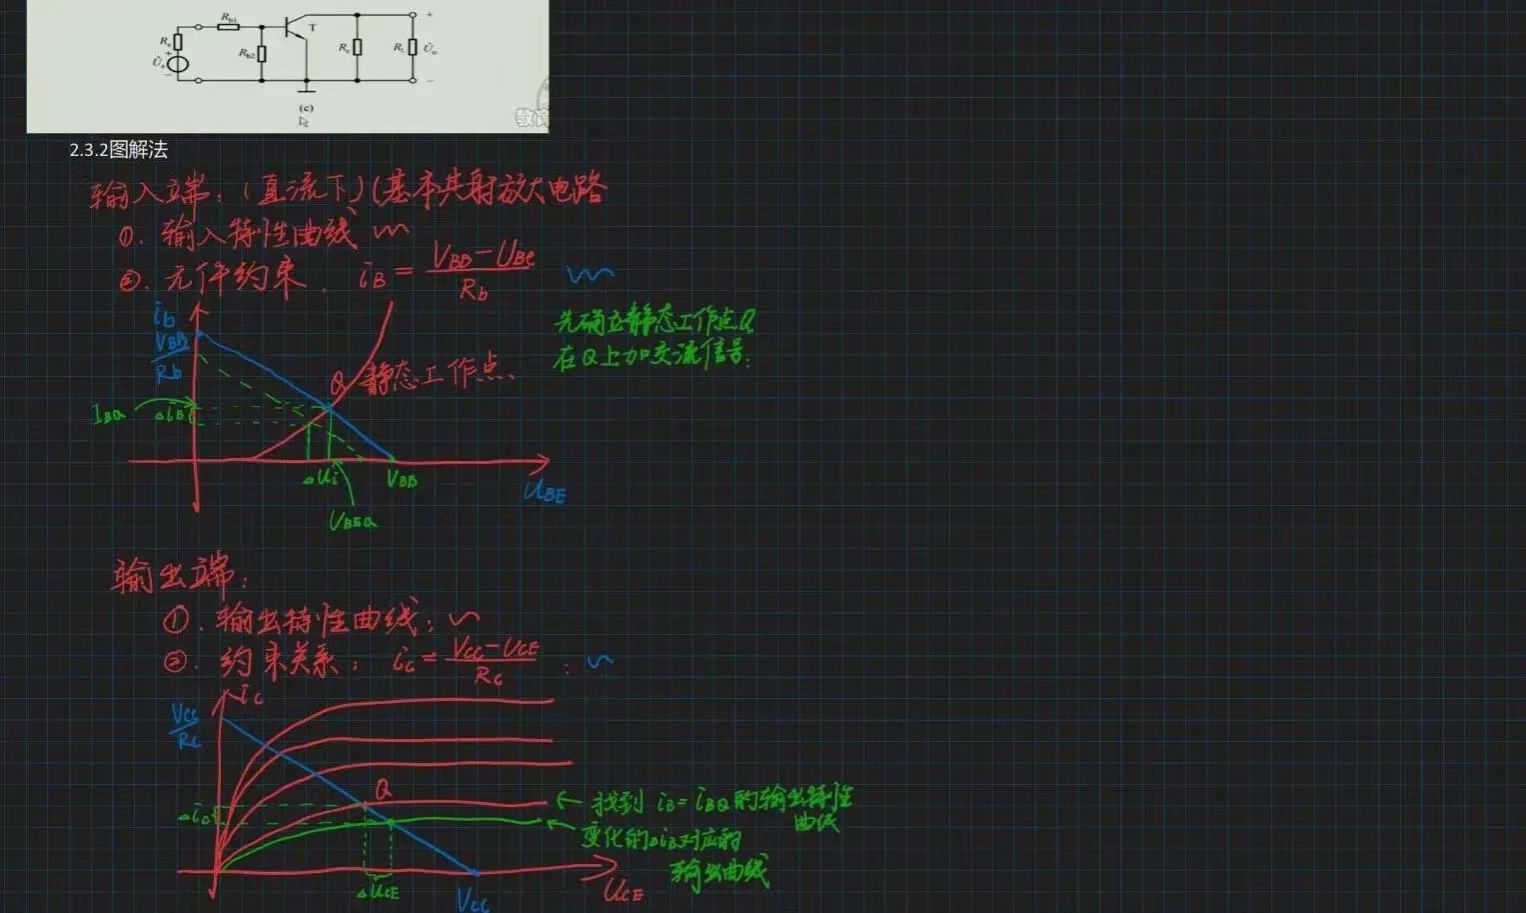 Rb1
T
Rs
Rb2
Rc
RL
U̇o
U̇s
+
−
(c)
2.3.2图解法
输入端：（直流下）（基本共射放大电路
①. 输入特性曲线
②. 元件约束. iB = (VBB − UBE) / Rb
先确立静态工作点Q
在Q上加交流信号.
ib
VBB / Rb
Q 静态工作点.
IBQ
△iB
△Ui
VBB
UBE
UBEQ
输出端：
①. 输出特性曲线：
②. 约束关系： iC = (VCC − UCE) / RC :
iC
VCC / RC
Q
← 找到 iB = iBQ的输出特性
曲线
△iC
← 变化的△iB对应的
输出曲线
△UCE
VCC
UCE